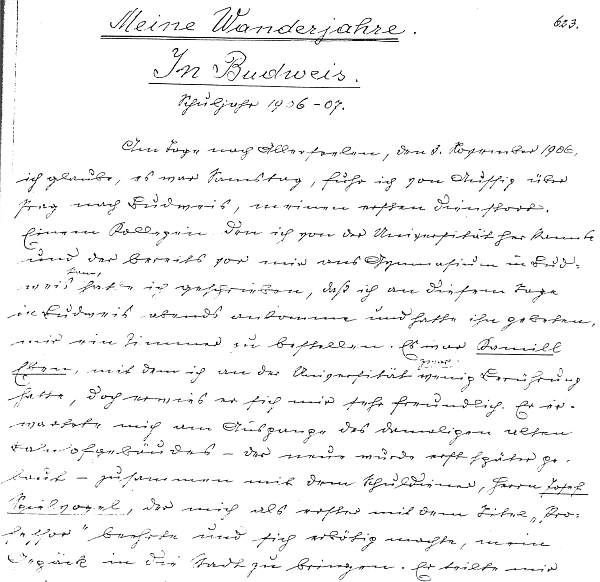 623.
Meine Wanderjahre.
In Budweis.
Schuljahr 1906-07.
Am Tage nach Allerseelen, den 3. November 1906,
ich glaube, es war Samstag, fuhr ich von Aussig über
Prag nach Budweis, meinen ersten Dienstort.
Einem Kollegen den ich von der Universität her kannte
und der bereits vor mir ans Gymnasium in Bud-
weis kam, hatte ich geschrieben, daß ich an diesem Tage
in Budweis abends ankomme und hatte ihn gebeten,
mir ein Zimmer zu bestellen. Es war Kamill
, mit dem ich an der Universität zwar wenig Berührung
hatte, doch erwies er sich mir sehr freundlich. Er er-
wartete mich am Ausgange des damaligen alten
Bahnhofgebäudes - der neue wurde erst später ge-
baut - zusammen mit dem Schuldiener, Herrn Josef
Spielvogel, der mich als erster mit dem Titel „Pro-
fessor" beehrte und sich erbötig machte, mein
Gepäck in die Stadt zu bringen. Er teilte mir